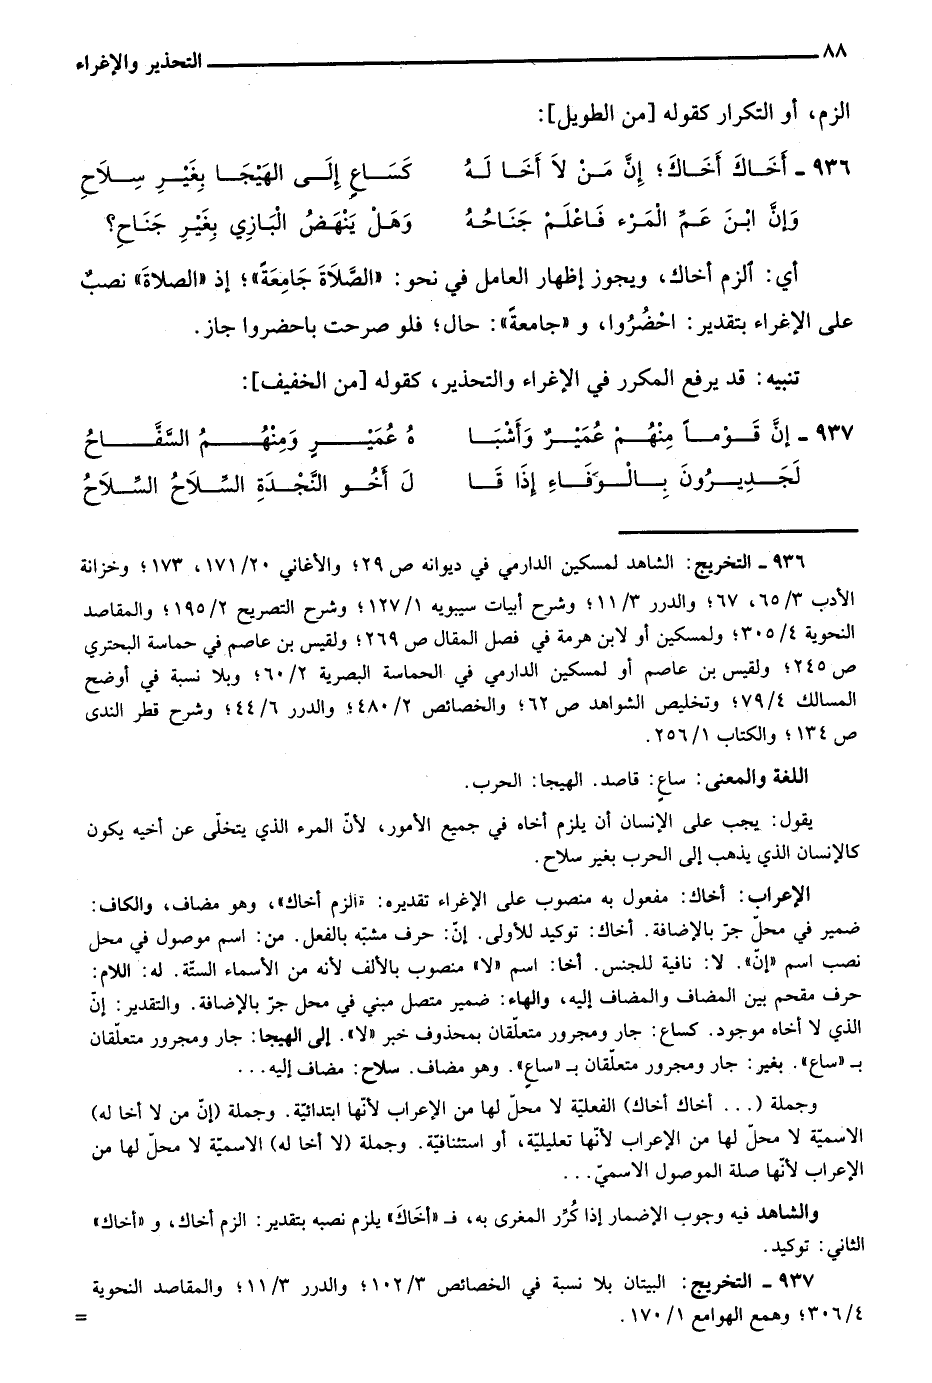 ٨٨ التحذير والإغراء
الزم، أو التكرار كقوله [من الطويل]:
٩٣٦ ـ أَخَاكَ أَخَاكَ؛ إِنَّ مَنْ لاَ أَخَا لَهُ كَسَاعٍ إِلَى الهَيْجَا بِغَيْرِ سِلَاحِ
وَإِنَّ ابْنَ عَمِّ الْمَرْءِ فَاعْلَمْ جَنَاحُهُ وَهَلْ يَنْهَضُ الْبَازِي بِغَيْرِ جَنَاحِ؟
أي: ألزم أخاك، ويجوز إظهار العامل في نحو: «الصَّلَاةَ جَامِعَةً»؛ إذ «الصلاةَ» نصبٌ
على الإغراء بتقدير: احْضُرُوا، و «جامعةً»: حال؛ فلو صرحت باحضروا جاز.
تنبيه: قد يرفع المكرر في الإغراء والتحذير، كقوله [من الخفيف]:
٩٣٧ ـ إنَّ قَوْماً مِنْهُمْ عُمَيْرٌ وَأَشْبَا هُ عُمَيْرٍ وَمِنْهُمُ السَّفَّاحُ
لَجَدِيرُونَ بِالْوَفَاءِ إِذَا قَا لَ أَخُو النَّجْدَةِ السِّلَاحُ السِّلَاحُ
٩٣٦ ـ التخريج: الشاهد لمسكين الدارمي في ديوانه ص ٢٩؛ والأغاني ٢٠/ ١٧١، ١٧٣؛ وخزانة
الأدب ٣/ ٦٥، ٦٧؛ والدرر ٣/ ١١؛ وشرح أبيات سيبويه ١/ ١٢٧؛ وشرح التصريح ٢/ ١٩٥؛ والمقاصد
النحوية ٤/ ٣٠٥؛ ولمسكين أو لابن هرمة في فصل المقال ص ٢٦٩؛ ولقيس بن عاصم في حماسة البحتري
ص ٢٤٥؛ ولقيس بن عاصم أو لمسكين الدارمي في الحماسة البصرية ٢/ ٦٠؛ وبلا نسبة في أوضح
المسالك ٤/ ٧٩؛ وتخليص الشواهد ص ٦٢؛ والخصائص ٢/ ٤٨٠؛ والدرر ٦/ ٤٤؛ وشرح قطر الندى
ص ١٣٤؛ والكتاب ١/ ٢٥٦.
اللغة والمعنى: ساعٍ: قاصد. الهيجا: الحرب.
يقول: يجب على الإنسان أن يلزم أخاه في جميع الأمور، لأنّ المرء الذي يتخلّى عن أخيه يكون
كالإنسان الذي يذهب إلى الحرب بغير سلاح.
الإعراب: أخاك: مفعول به منصوب على الإغراء تقديره: «الزم أخاك»، وهو مضاف، والكاف:
ضمير في محلّ جرّ بالإضافة. أخاك: توكيد للأولى. إنّ: حرف مشبّه بالفعل. من: اسم موصول في محل
نصب اسم «إنّ». لا: نافية للجنس. أخا: اسم «لا» منصوب بالألف لأنه من الأسماء الستّة. له: اللام:
حرف مقحم بين المضاف والمضاف إليه، والهاء: ضمير متصل مبني في محل جرّ بالإضافة. والتقدير: إنّ
الذي لا أخاه موجود. كساع: جار ومجرور متعلّقان بمحذوف خبر «لا». إلى الهيجا: جار ومجرور متعلّقان
بـ «ساع». بغير: جار ومجرور متعلّقان بـ «ساعٍ». وهو مضاف. سلاح: مضاف إليه...
وجملة (... أخاك أخاك) الفعليّة لا محلّ لها من الإعراب لأنّها ابتدائيّة. وجملة (إنّ من لا أخا له)
الاسميّة لا محلّ لها من الإعراب لأنّها تعليليّة، أو استئنافيّة. وجملة (لا أخا له) الاسميّة لا محلّ لها من
الإعراب لأنّها صلة الموصول الاسميّ...
والشاهد فيه وجوب الإضمار إذا كُرِّر المغرى به، فـ «أَخَاكَ» يلزم نصبه بتقدير: الزم أخاك، و «أخاك»
الثاني: توكيد.
٩٣٧ ـ التخريج: البيتان بلا نسبة في الخصائص ٣/ ١٠٢؛ والدرر ٣/ ١١؛ والمقاصد النحوية
٤/ ٣٠٦؛ وهمع الهوامع ١/ ١٧٠. =